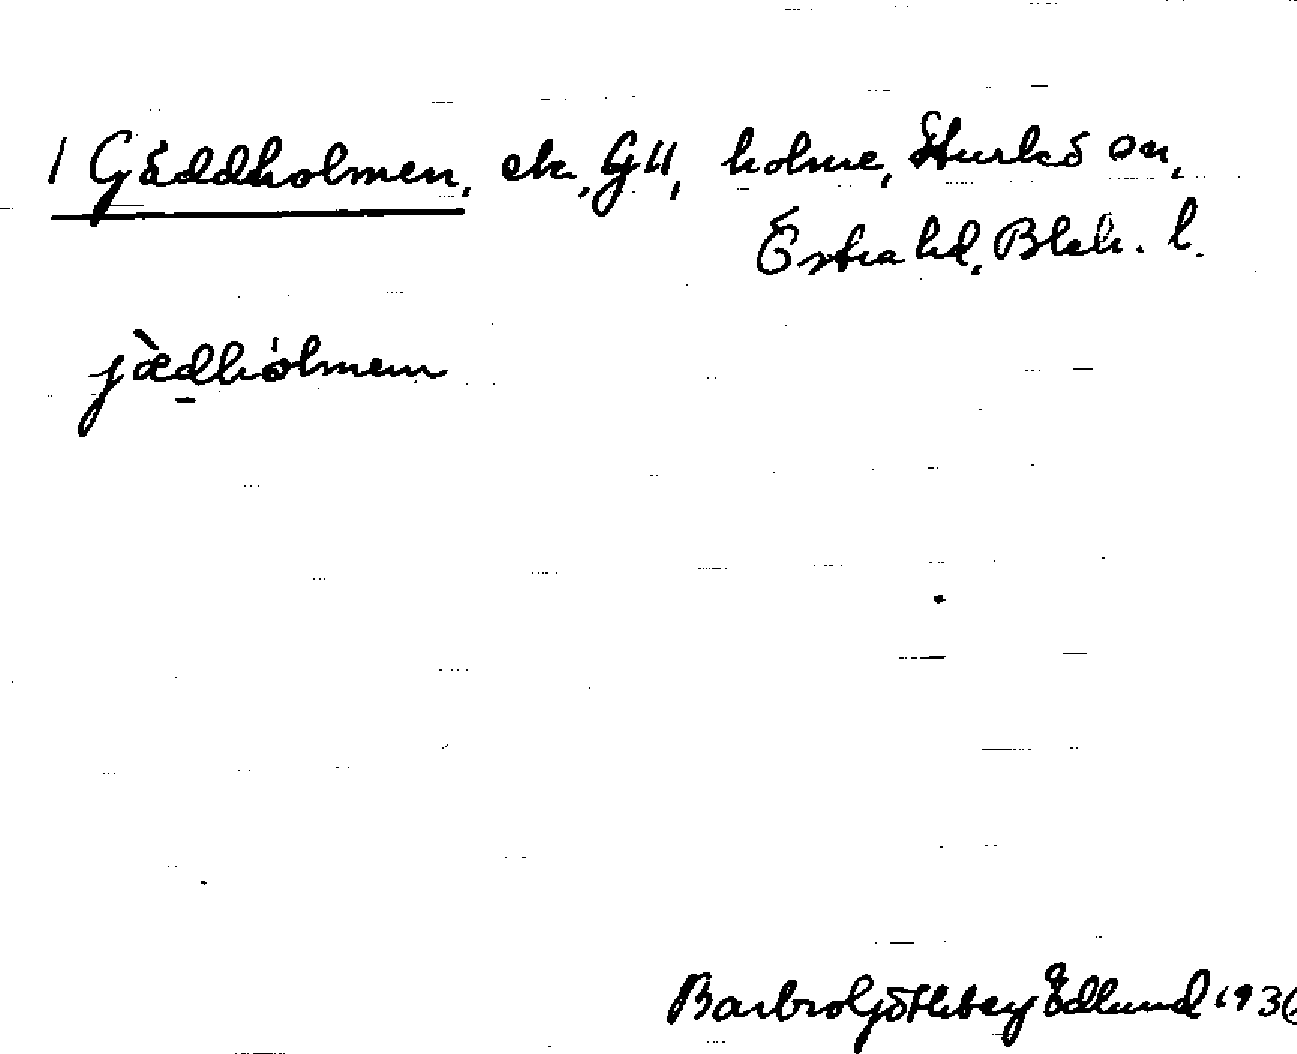 1 Gäddholmen, ek, GII, holme, Sturkö sn,
Östra hd, Blek. l.
jàdhólmen
Barbro Götlberg Edlund 1936